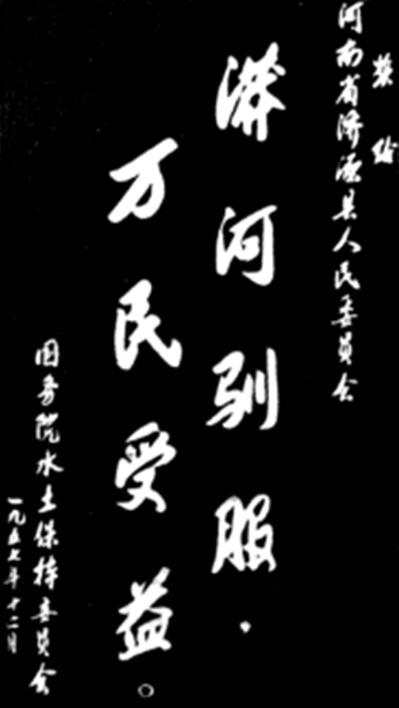 奖给
河南省济源县人民委员会
漭河驯服，
万民受益。
国务院水土保持委员会
一九五七年十二月